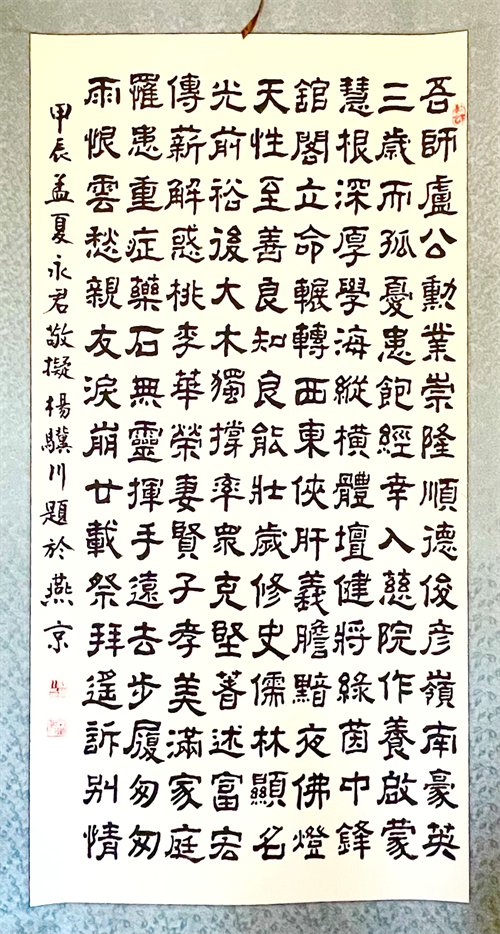 吾師盧公勳業崇隆順德俊彥嶺南豪英
三歲而孤憂患飽經幸入慈院作養啟蒙
慧根深厚學海縱橫體壇健將綠茵中鋒
舘閣立命輾轉西東俠肝義膽黯夜佛燈
天性至善良知良能壯歲修史儒林顯名
光前裕後大木獨撐率衆克堅著述富宏
傳薪解惑桃李華榮妻賢子孝美滿家庭
罹患重症藥石無靈揮手遠去步履匆匆
雨恨雲愁親友淚崩廿載祭拜遙訴別情
甲辰孟夏永君敬擬楊驥川題於燕京